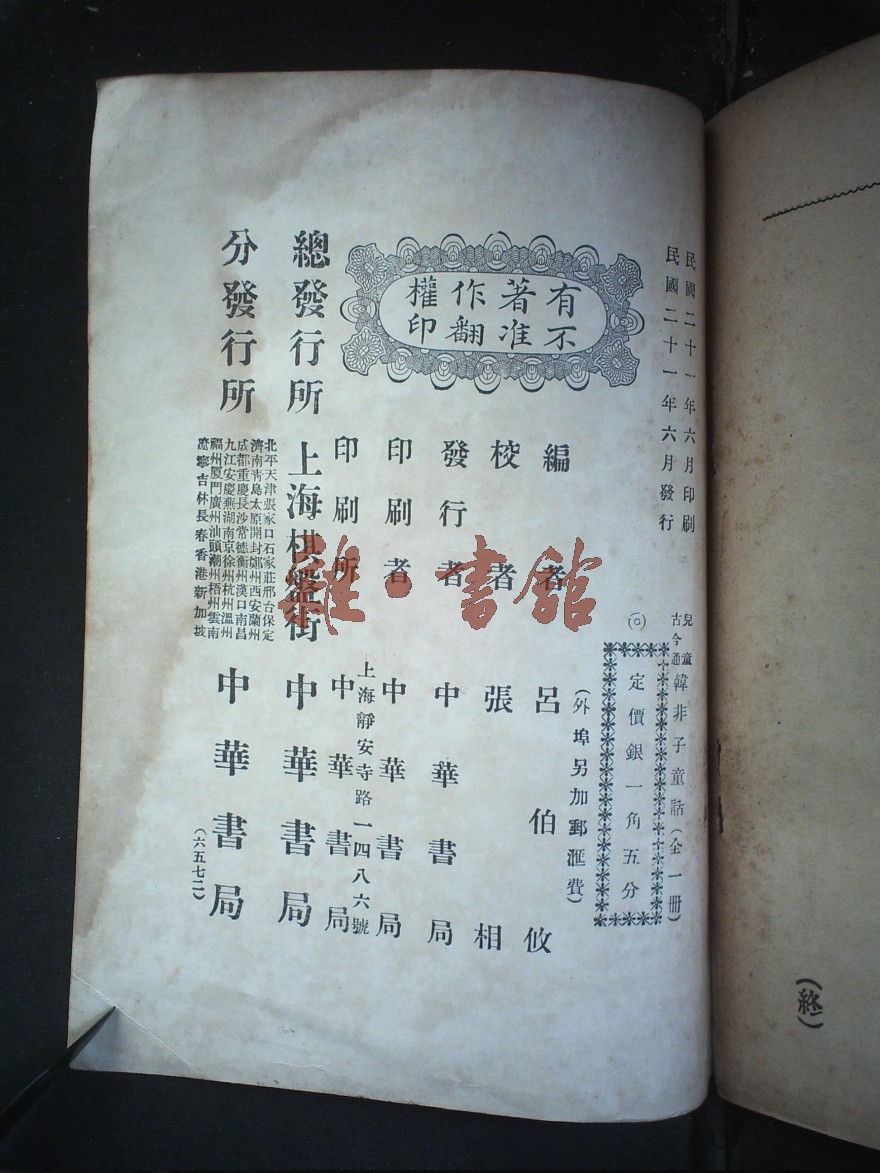 民國二十一年六月印刷
民國二十一年六月發行
兒童
古今通
韓非子童話（全一册）
（○）
定價銀一角五分
（外埠另加郵滙費）
有著作權
不准翻印
編者 呂伯攸
校者 張相
發行者 中華書局
印刷者 中華書局
上海靜安寺路一四八六號
印刷所 中華書局
總發行所 上海棋盤街 中華書局
分發行所
北平天津張家口石家莊邢台保定
濟南靑島太原開封鄭州西安蘭州
成都重慶長沙常德衡州漢口南昌
九江安慶蕪湖南京徐州杭州溫州
福州厦門廣州汕頭潮州梧州雲南
遼寧吉林長春香港新加坡
中華書局
（六五七二）
（終）
雜·書館